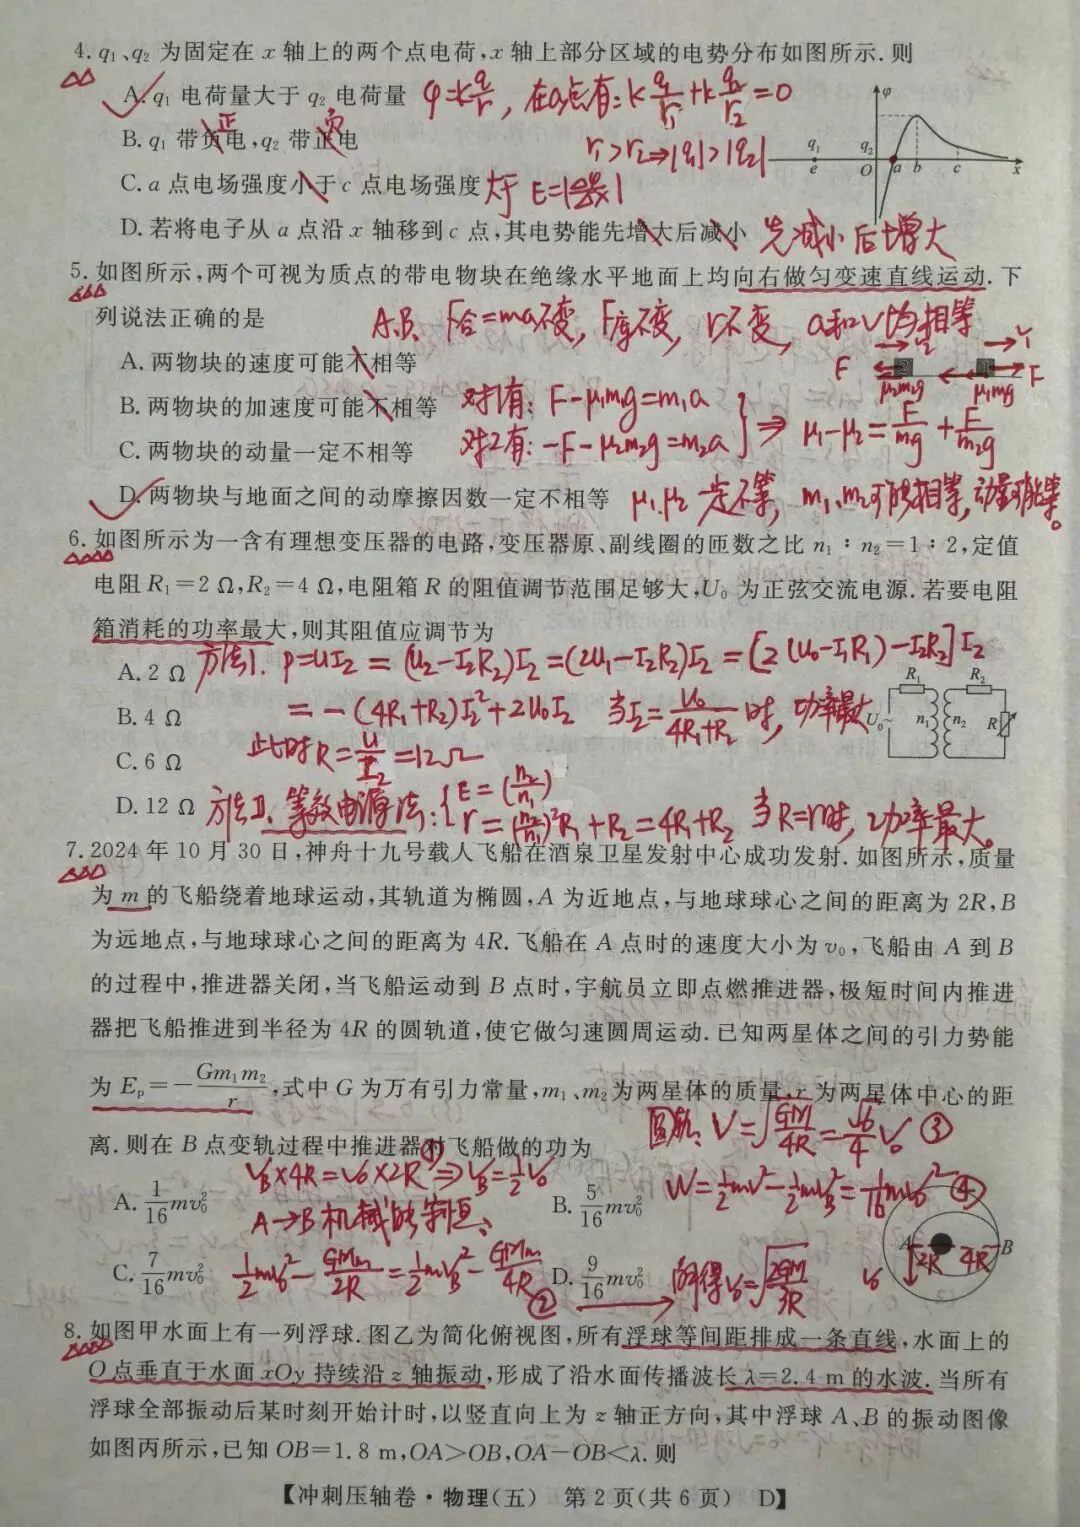 4. q₁、q₂ 为固定在 x 轴上的两个点电荷,x 轴上部分区域的电势分布如图所示. 则
A. q₁ 电荷量大于 q₂ 电荷量 φ=k q/r, 在a点有: k q₁/r₁ + k q₂/r₂ = 0
B. q₁ 带负电,q₂ 带正电 正 负 r₁>r₂⇒|q₁|>|q₂|
φ q₁ q₂ e O a b c x
C. a 点电场强度小于 c 点电场强度 大于 E=|斜率|
D. 若将电子从 a 点沿 x 轴移到 c 点,其电势能先增大后减小 先减小后增大
5. 如图所示,两个可视为质点的带电物块在绝缘水平地面上均向右做匀变速直线运动. 下
列说法正确的是 A.B. F合=ma不变, F库不变, r不变, a和v均相等
A. 两物块的速度可能不相等
F 2 1 F μ₂m₂g μ₁m₁g
B. 两物块的加速度可能不相等 对1有: F-μ₁m₁g=m₁a
C. 两物块的动量一定不相等 对2有: -F-μ₂m₂g=m₂a ⇒ μ₁-μ₂=F/m₁g+F/m₂g
D. 两物块与地面之间的动摩擦因数一定不相等 μ₁、μ₂一定不等, m₁、m₂可能相等, 动量可能等。
6. 如图所示为一含有理想变压器的电路,变压器原、副线圈的匝数之比 n₁∶n₂=1∶2,定值
电阻 R₁=2 Ω,R₂=4 Ω,电阻箱 R 的阻值调节范围足够大,U₀ 为正弦交流电源. 若要电阻
箱消耗的功率最大,则其阻值应调节为
A. 2 Ω 方法Ⅰ. P=UI₂=(U₂-I₂R₂)I₂=(2U₁-I₂R₂)I₂=[2(U₀-I₁R₁)-I₂R₂]I₂
B. 4 Ω =-(4R₁+R₂)I₂²+2U₀I₂ 当I₂=U₀/(4R₁+R₂)时, 功率最大
R₁ R₂ U₀~ n₁ n₂ R
C. 6 Ω 此时R=U/I₂=12Ω
D. 12 Ω 方法Ⅱ. 等效电源法: {E=(n₂/n₁) r=(n₂/n₁)²R₁+R₂=4R₁+R₂ 当R=r时, 功率最大。
7. 2024 年 10 月 30 日,神舟十九号载人飞船在酒泉卫星发射中心成功发射. 如图所示,质量
为 m 的飞船绕着地球运动,其轨道为椭圆,A 为近地点,与地球球心之间的距离为 2R,B
为远地点,与地球球心之间的距离为 4R. 飞船在 A 点时的速度大小为 v₀,飞船由 A 到 B
的过程中,推进器关闭,当飞船运动到 B 点时,宇航员立即点燃推进器,极短时间内推进
器把飞船推进到半径为 4R 的圆轨道,使它做匀速圆周运动. 已知两星体之间的引力势能
为 Eₚ=-Gm₁m₂/r,式中 G 为万有引力常量,m₁、m₂ 为两星体的质量,r 为两星体中心的距
离. 则在 B 点变轨过程中推进器对飞船做的功为 圆轨: V=√(GM/4R)=√6/4 v₀ ③
v_B×4R=v₀×2R ① ⇒v_B=1/2 v₀
A. 1/16 mv₀² B. 5/16 mv₀² W=1/2mv²-1/2mv_B²=1/16mv₀² ④
A→B机械能守恒、
C. 7/16 mv₀² 1/2mv₀²-GMm/2R=1/2mv_B²-GMm/4R ② D. 9/16 mv₀² 解得v₀=√(2GM/3R)
A B 2R 4R v₀
8. 如图甲水面上有一列浮球. 图乙为简化俯视图,所有浮球等间距排成一条直线,水面上的
O 点垂直于水面 xOy 持续沿 z 轴振动,形成了沿水面传播波长 λ=2.4 m 的水波. 当所有
浮球全部振动后某时刻开始计时,以竖直向上为 z 轴正方向,其中浮球 A、B 的振动图像
如图丙所示,已知 OB=1.8 m,OA>OB,OA-OB<λ. 则
【冲刺压轴卷·物理(五) 第 2 页(共 6 页) D】